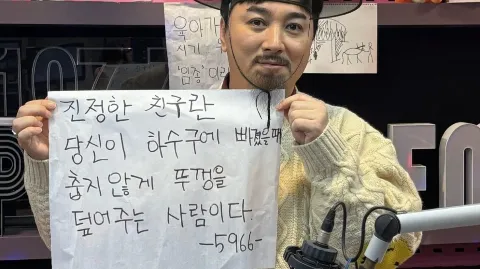 육아가
시기
진정한 친구란
당신이 하수구에 빠졌을때
춥지 않게 뚜껑을
덮어주는 사람이다
-5966-
107
FO